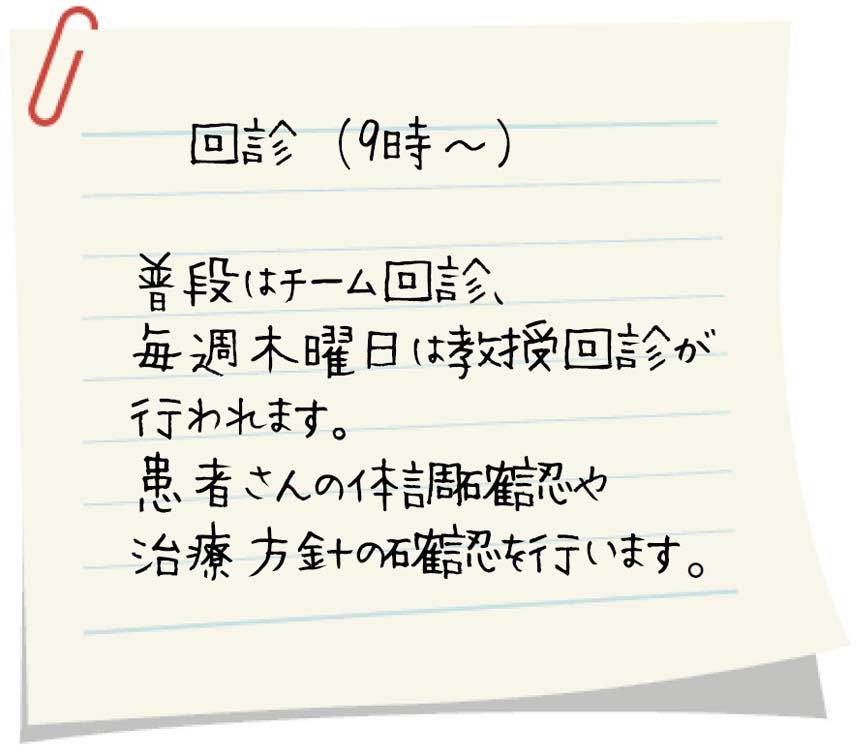 回診（9時～）
普段はチーム回診、
毎週木曜日は教授回診が
行われます。
患者さんの体調確認や
治療方針の確認を行います。